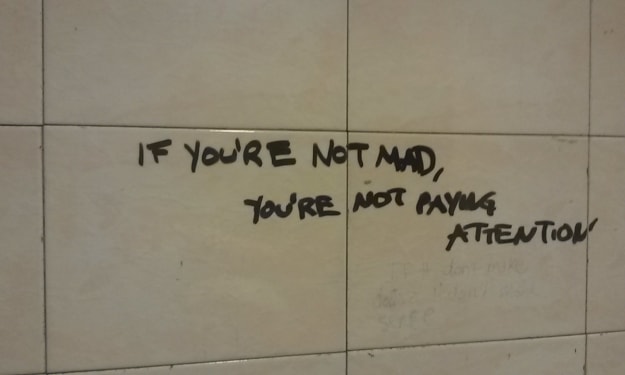 IF YOU'RE NOT MAD,
YOU'RE NOT PAYING
ATTENTION
don't make